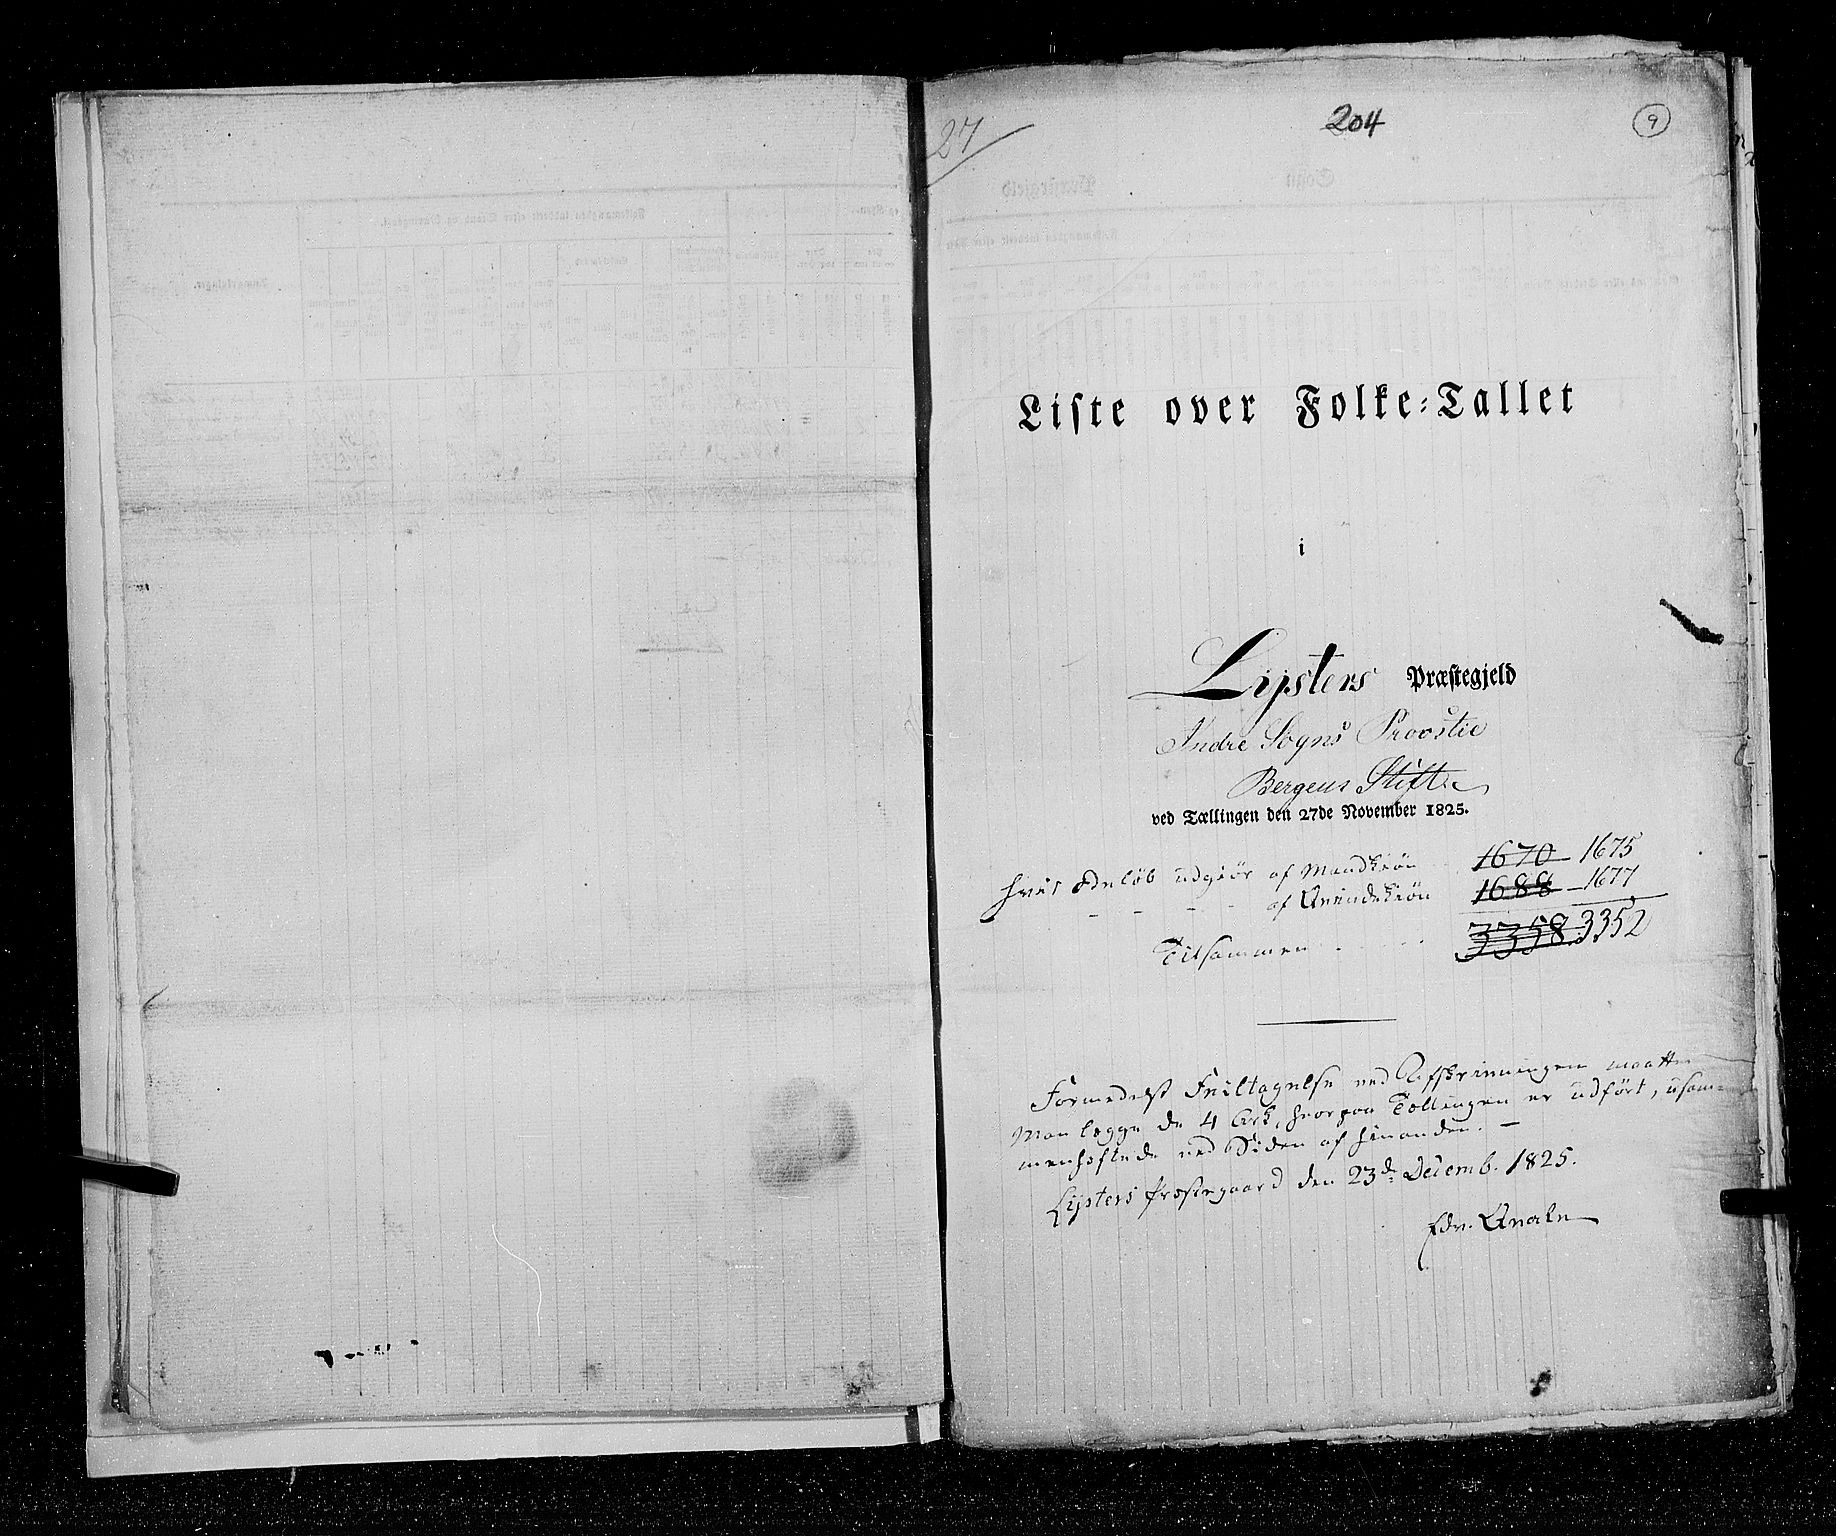 27
204
9
Liste over Folke-Tallet
i
Lysters Præstegjeld
Indre Sogns Provstie
Bergens Stift
ved Tællingen den 27de November 1825.
hvis Beløb udgiør af Mandkiøn 1670 1675
- - - - af Qvindekiøn 1688 1677
Tilsammen - - - 3358. 3352
Formedelst Feiltagelse ved Afskrivningen maatte
man lægge de 4 Ark, hvorpaa Tællingen er udført, usam-
menheftede ved Siden af hinanden. -
Lysters Præstegaard den 23d: Decemb. 1825.
Edv. Qvale